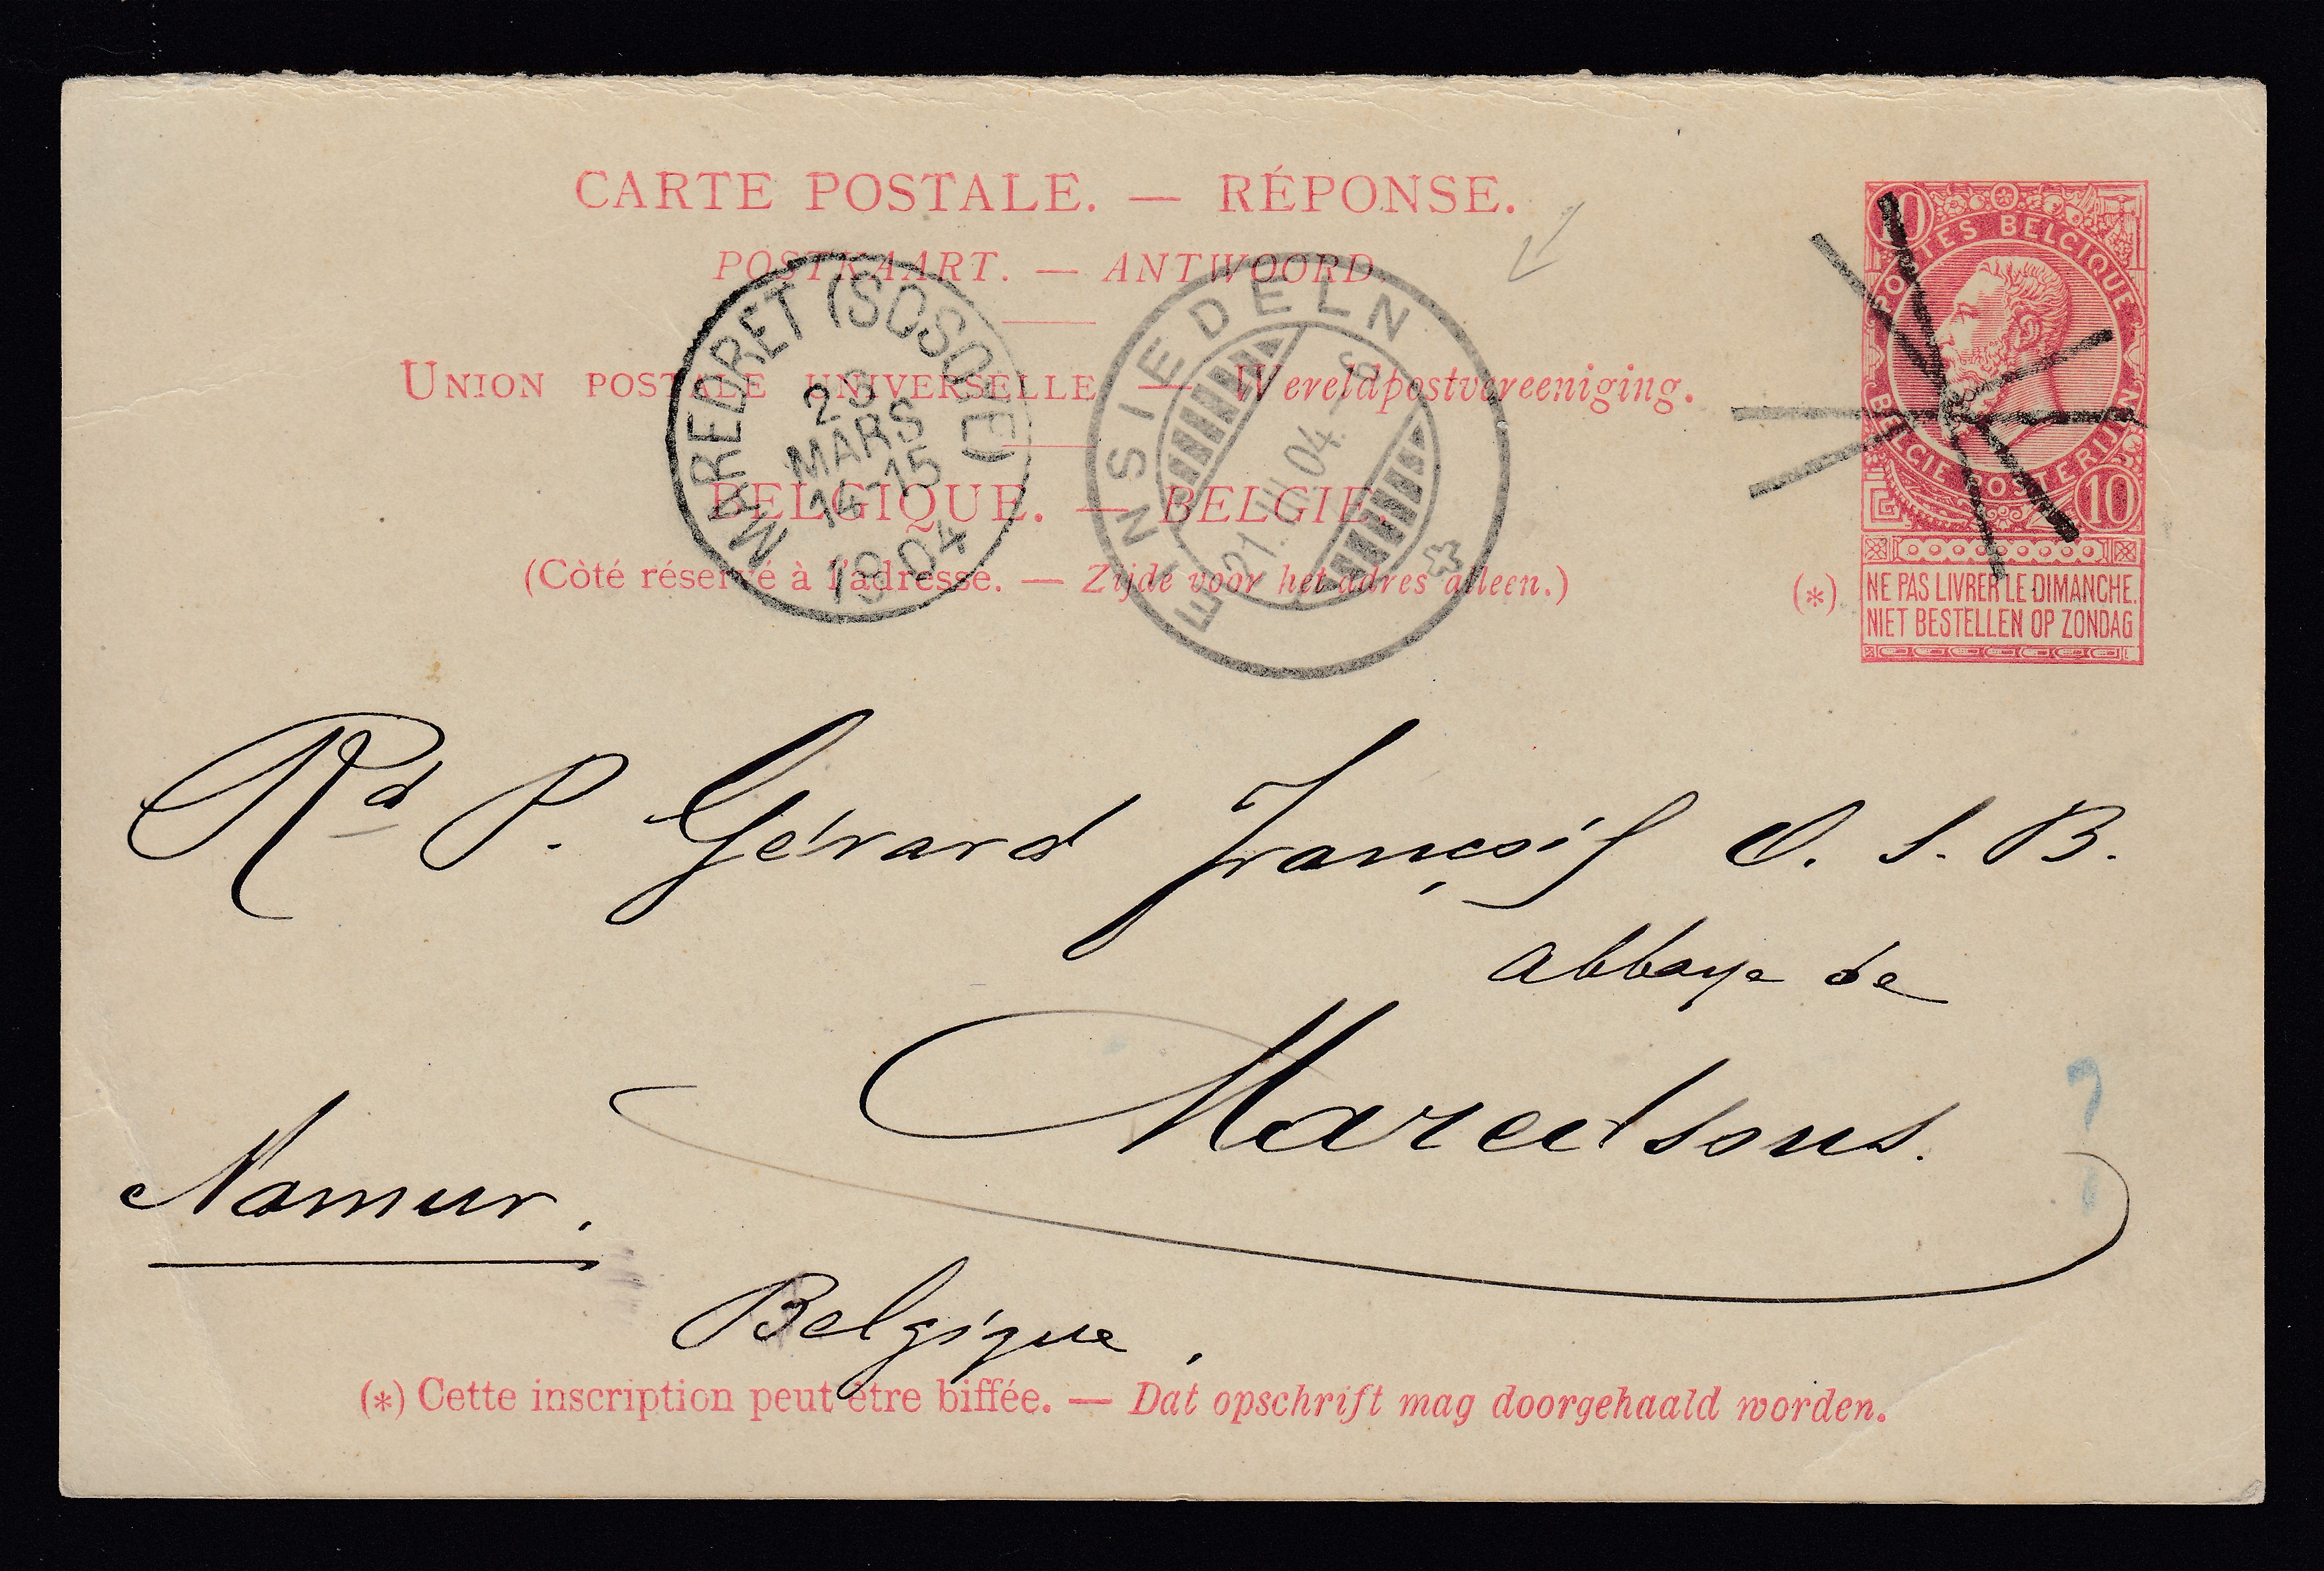 CARTE POSTALE. — RÉPONSE.
POSTKAART. — ANTWOORD
UNION POSTALE UNIVERSELLE — Wereldpostvereeniging.
BELGIQUE. — BELGIE.
(Côté réservé à l'adresse. — Zijde voor het adres alleen.)
MAREDRET (SOSOYE)
23
MARS
14-15
1904
EINSIEDELN
21. III. 04.
10
POSTES BELGIQUE
BELGIE POSTERIJEN
10
(*)
NE PAS LIVRER LE DIMANCHE.
NIET BESTELLEN OP ZONDAG
Rd P. Gérard François O. S. B.
abbaye de
Maredsous.
Namur.
Belgique,
(*) Cette inscription peut être biffée. — Dat opschrift mag doorgehaald worden.